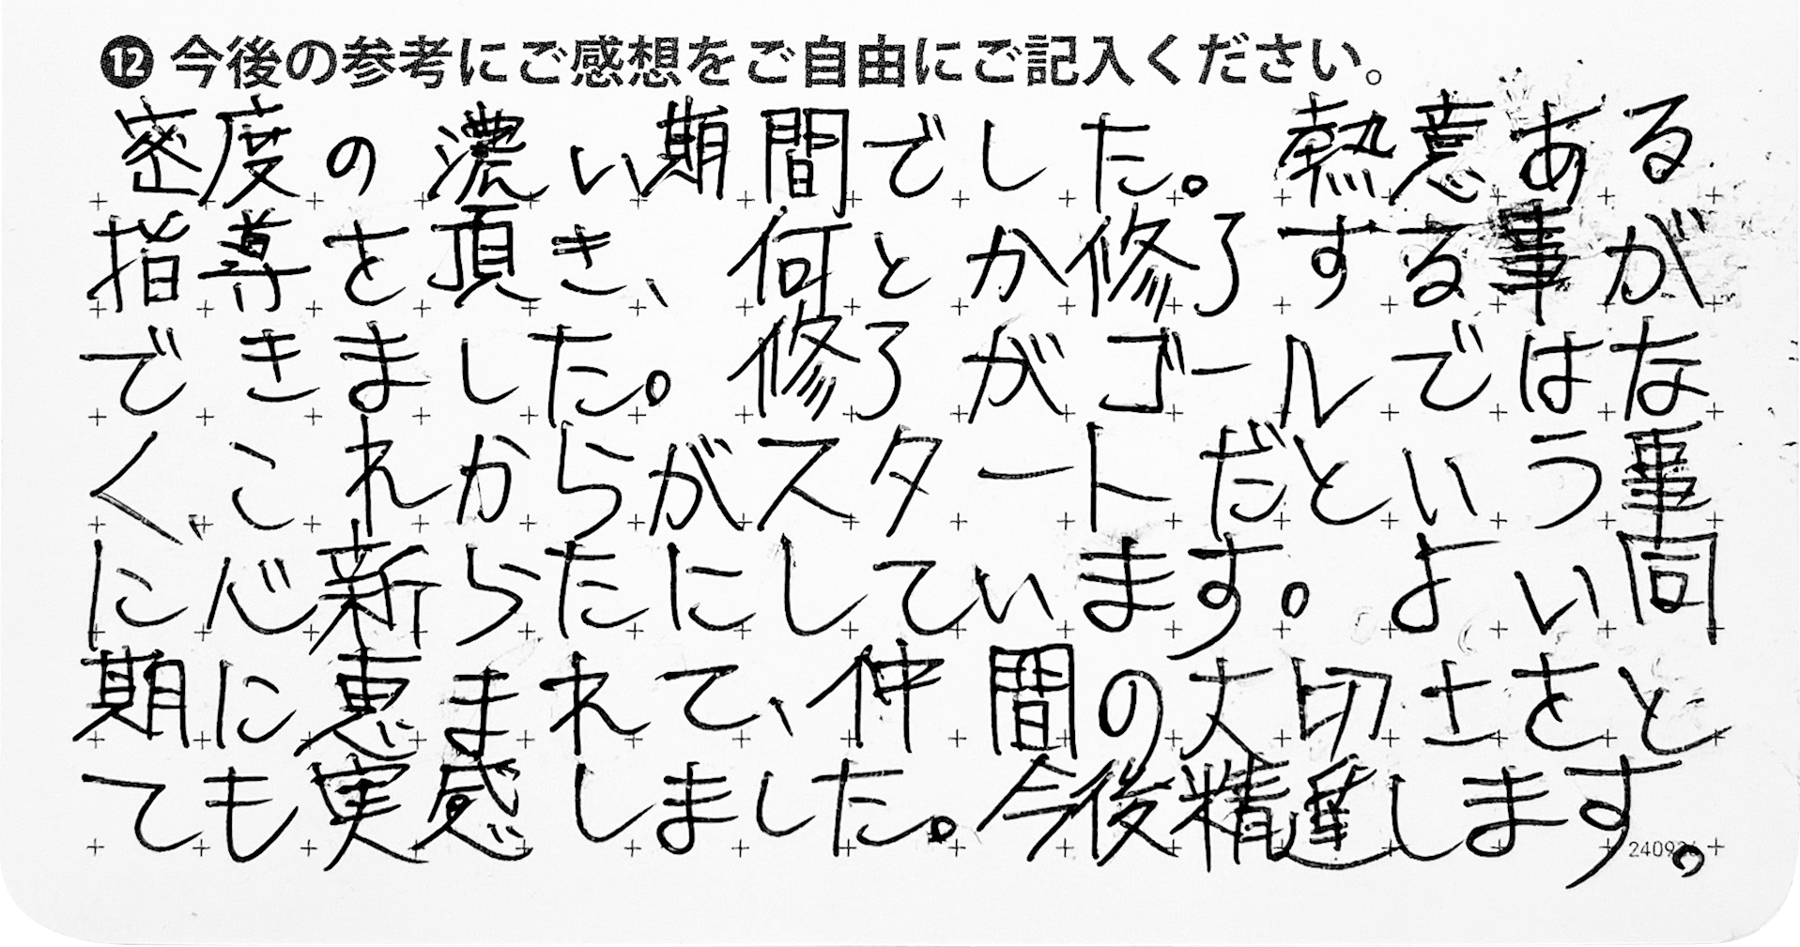 ⓬今後の参考にご感想をご自由にご記入ください。
密度の濃い期間でした。熱意ある
指導を頂き、何とか修了する事が
できました。修了がゴールではな
く、これからがスタートだという事
に心新らたにしています。よい同
期に恵まれて、仲間の大切さをと
ても実感しました。今後精進します。